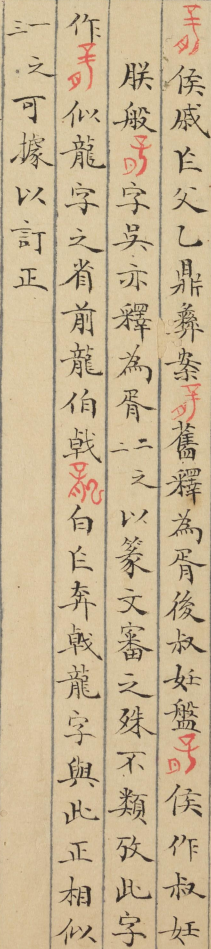 侯戚乍父乙鼎彝案舊釋為胥後叔妊盤侯作叔妊
朕般字吳亦釋為胥二二之以篆文審之殊不類攷此字
作似龍字之省前龍伯戟白乍奔戟龍字與此正相似
三一之可據以訂正